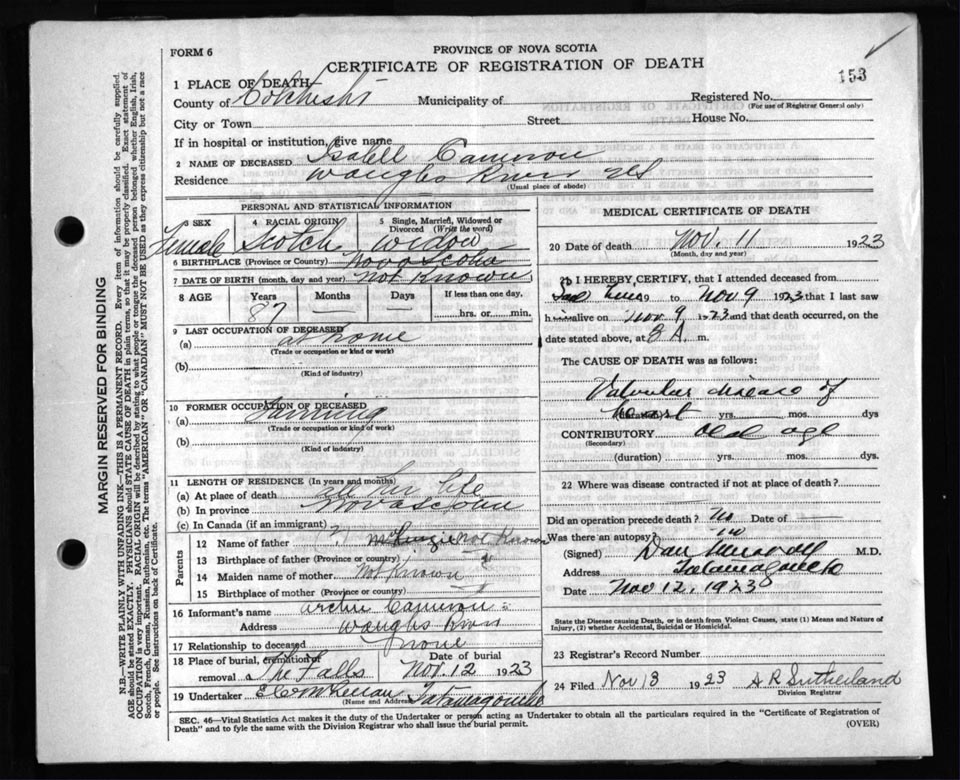 FORM 6
PROVINCE OF NOVA SCOTIA
CERTIFICATE OF REGISTRATION OF DEATH
153
1 PLACE OF DEATH
County of Colchester Municipality of Registered No.
(For use of Registrar General only)
City or Town Street House No.
If in hospital or institution, give name
2 NAME OF DECEASED Isabell Cameron
Residence Waughs River NS
(Usual place of abode)
PERSONAL AND STATISTICAL INFORMATION
3 SEX 4 RACIAL ORIGIN 5 Single, Married, Widowed or Divorced (Write the word)
Female Scotch Widow
6 BIRTHPLACE (Province or Country) Nova Scotia
7 DATE OF BIRTH (month, day and year) not Known
8 AGE Years Months Days If less than one day,
87 — — hrs. or min.
9 LAST OCCUPATION OF DECEASED
(a) at home
(Trade or occupation or kind or work)
(b)
(Kind of industry)
10 FORMER OCCUPATION OF DECEASED
(a) Farming
(Trade or occupation or kind of work)
(b)
(Kind of industry)
11 LENGTH OF RESIDENCE (In years and months)
(a) At place of death all her life
(b) In province Nova Scotia
(c) In Canada (if an immigrant)
Parents
12 Name of father (?) McKenzie not Known
13 Birthplace of father (Province or country)
14 Maiden name of mother not Known
15 Birthplace of mother (Province or country)
16 Informant's name Archie Cameron
Address Waughs River
17 Relationship to deceased none
18 Place of burial, cremation or removal Date of burial
The Falls Nov. 12 1923
19 Undertaker Tatamagouche
(Name and Address)
MEDICAL CERTIFICATE OF DEATH
20 Date of death Nov. 11 1923
(Month, day and year)
21 I HEREBY CERTIFY, that I attended deceased from
to Nov 9 1923 that I last saw
h alive on Nov 9 1923 and that death occurred, on
date stated above, at 8 A. m.
The CAUSE OF DEATH was as follows:
Valvular disease of
heart (duration) yrs. mos. dys
CONTRIBUTORY old age
(Secondary)
(duration) yrs. mos. dys.
22 Where was disease contracted if not at place of death?
Did an operation precede death? Date of
Was there an autopsy?
(Signed) Dan Murray M.D.
Address Tatamagouche
Date Nov 12, 1923
State the Disease causing Death, or in death from Violent Causes, state (1) Means and Nature of
Injury, (2) whether Accidental, Suicidal or Homicidal.
23 Registrar's Record Number
24 Filed Nov 13 1923 A R Sutherland
Division Registrar
SEC. 46—Vital Statistics Act makes it the duty of the Undertaker or person acting as Undertaker to obtain all the particulars required in the "Certificate of Registration of
Death" and to fyle the same with the Division Registrar who shall issue the burial permit. (OVER)
MARGIN RESERVED FOR BINDING
N.B.—WRITE PLAINLY WITH UNFADING INK—THIS IS A PERMANENT RECORD. Every item of information should be carefully supplied.
AGE should be stated EXACTLY. PHYSICIANS should STATE CAUSE OF DEATH in plain terms, so that it may be properly classified. Exact statement of
OCCUPATION is very important. RACIAL ORIGIN will be described by stating to what people or tongue the deceased person belonged whether English, Irish,
Scotch, French, German, Russian, Ruthenian, etc. The terms "AMERICAN" or "CANADIAN" MUST NOT BE USED as they express citizenship but not a race
or people. See instructions on back of Certificate.